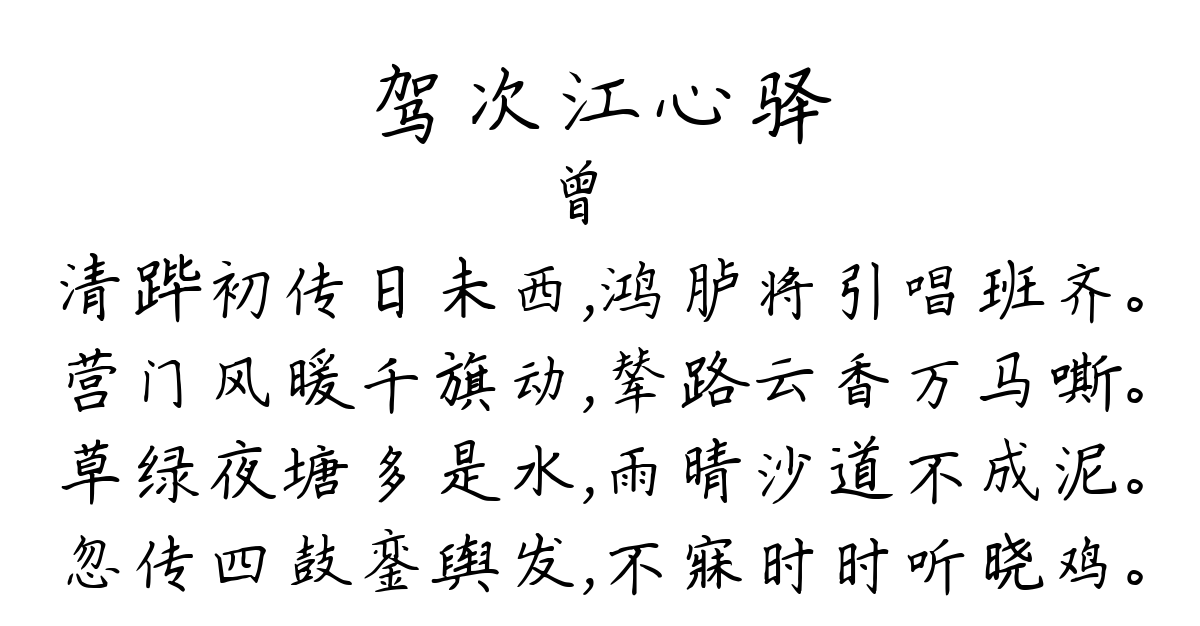 驾次江心驿
曾
清跸初传日未西,鸿胪将引唱班齐。
营门风暖千旗动,辇路云香万马嘶。
草绿夜塘多是水,雨晴沙道不成泥。
忽传四鼓銮舆发,不寐时时听晓鸡。